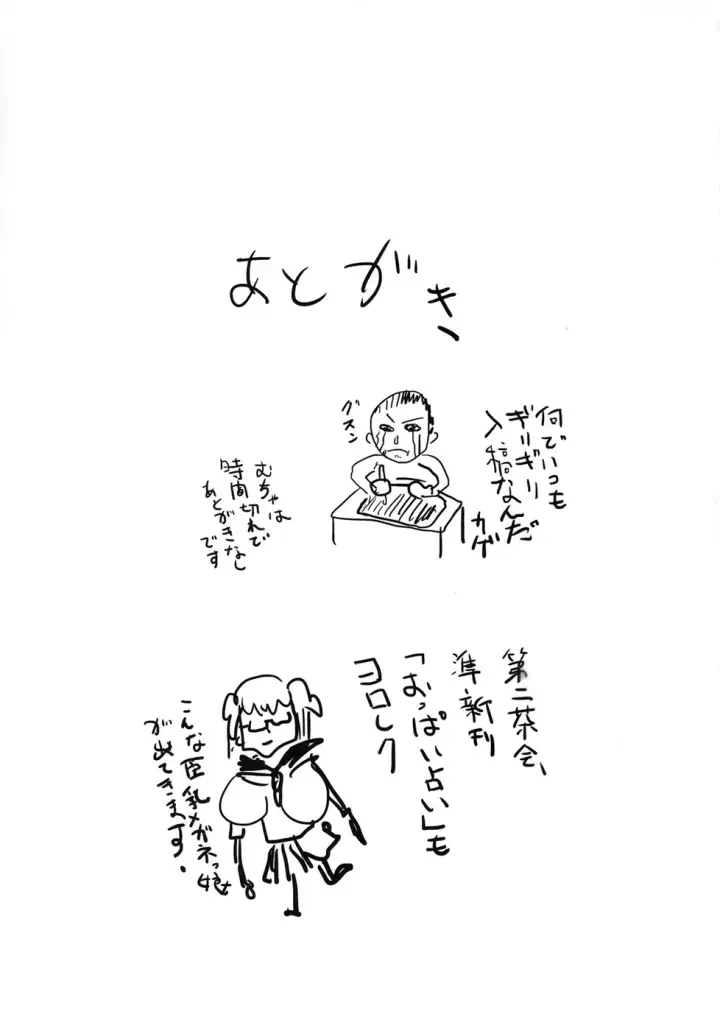 あとがき、
何でいつも
ギリギリ
入稿なんだ
カゲ
グスン
むちゃは
時間切れで
あとがきなし
です
第二茶会、
準新刊
「おっぱい占い」も
ヨロシク
こんな巨乳メガネっ娘
が出てきます。